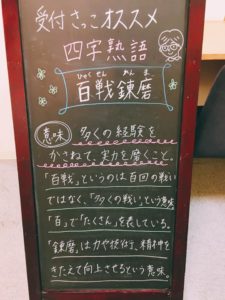 受付さっこオススメ
四字熟語
ひゃくせん れんま
百戦錬磨
意味 多くの経験を
かさねて、実力を磨くこと。
「百戦」というのは百回の戦い
ではなく、「多くの戦い」という意味
「百」で「たくさん」を表している。
「錬磨」は力や技術、精神を
きたえて向上させるという意味。